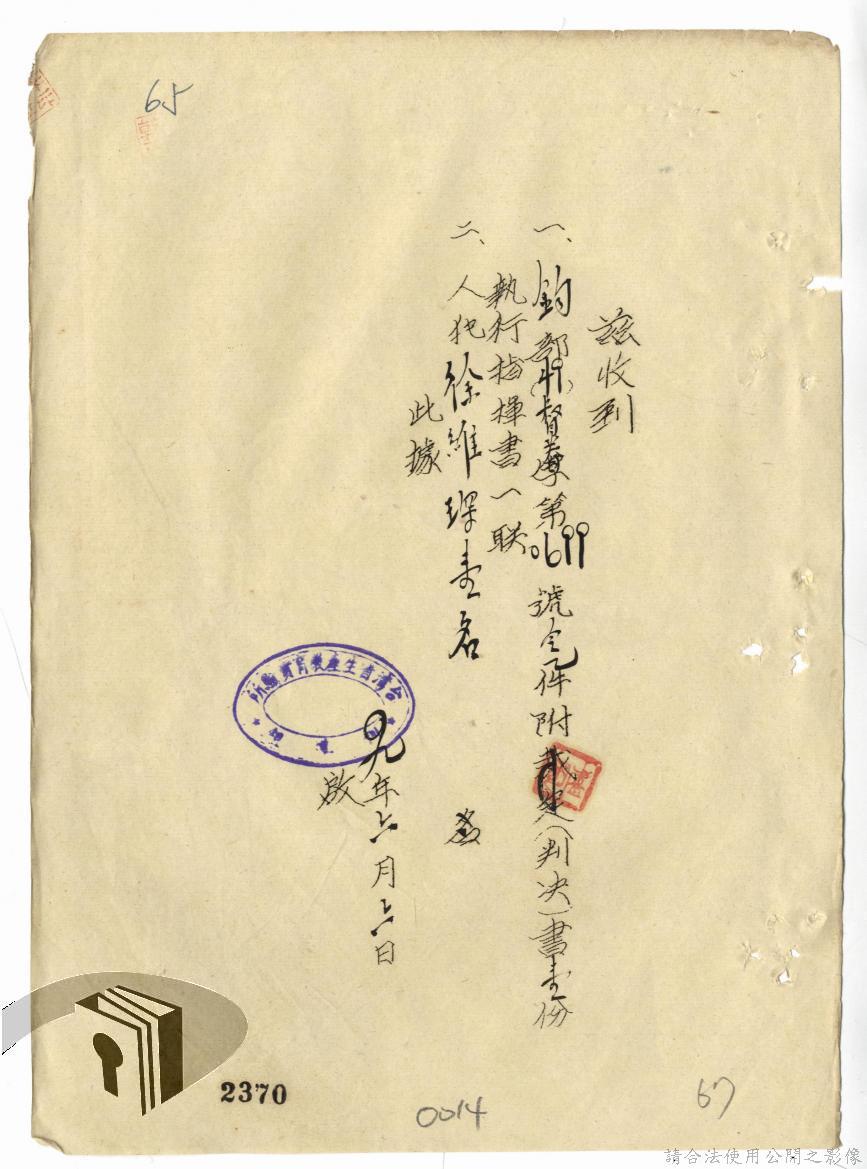 65
茲收到
一、鈞部(49)督 字第0699號令乙件附裁定(判決)書壹份
執行指揮書一联
二、人犯徐維琛壹名
此據
台灣省生產教育實驗所
49年六月六日
啟
2370
0014
67
請合法使用公開之影像